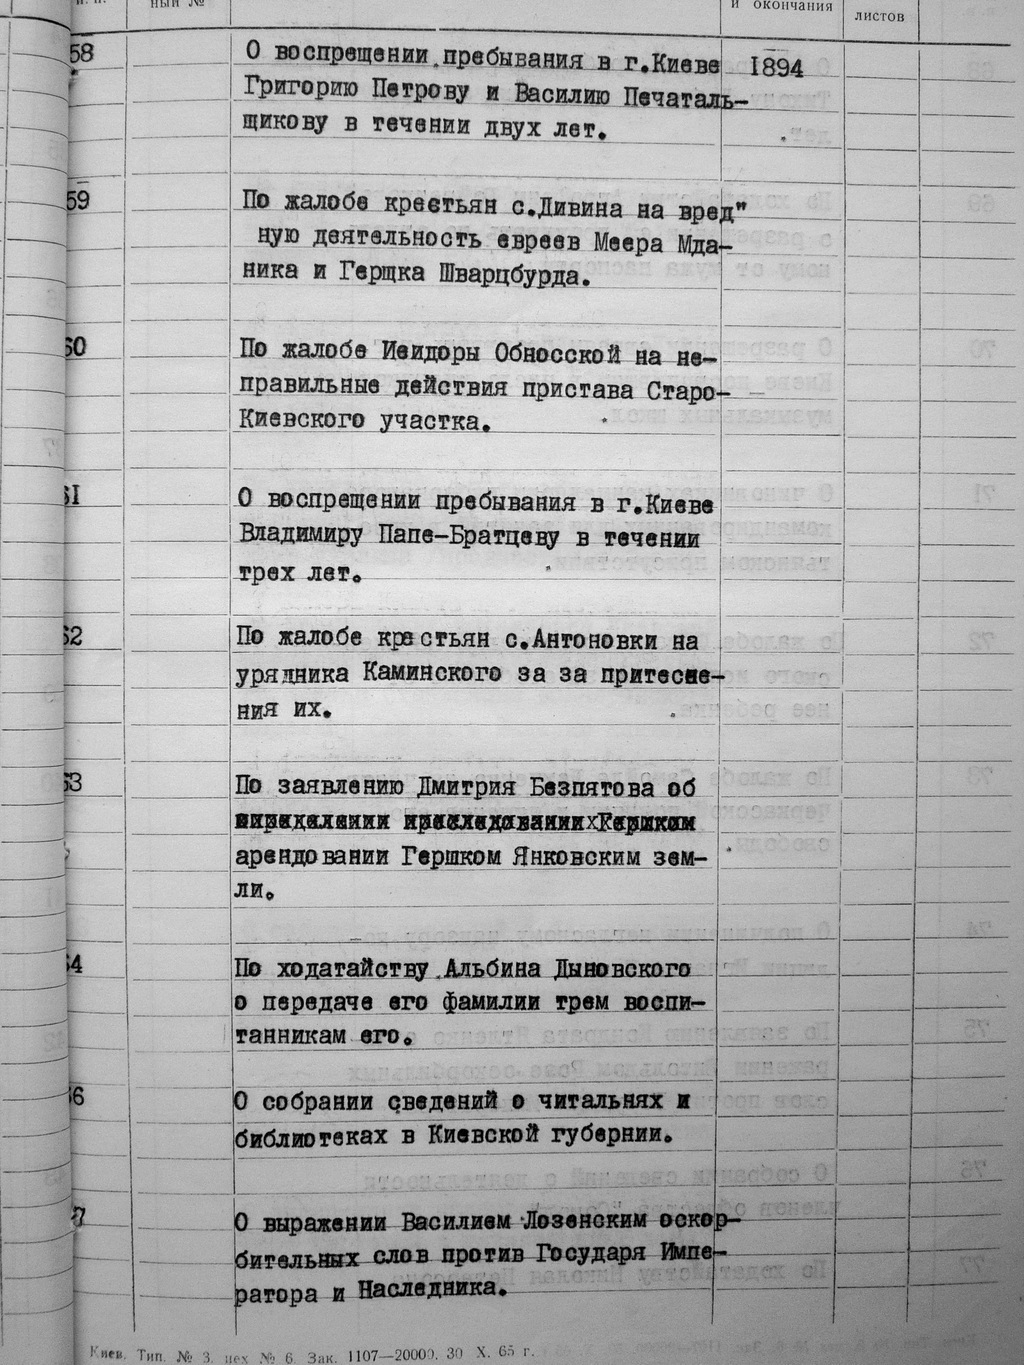 п. п.
ный №
и окончания
листов
58
О воспрещении пребывания в г.Киеве
1894
Григорию Петрову и Василию Печаталь-
щикову в течении двух лет.
59
По жалобе крестьян с.Дивина на вред"
ную деятельность евреев Меера Мда-
ника и Гершка Шварцбурда.
60
По жалобе Исидоры Обносской на не-
правильные действия пристава Старо-
Киевского участка.
61
О воспрещении пребывания в г.Киеве
Владимиру Папе-Братцеву в течении
трех лет.
62
По жалобе крестьян с.Антоновки на
урядника Каминского за за притесне-
ния их.
63
По заявлению Дмитрия Безпятова об
арендовании Гершком Янковским зем-
ли.
64
По ходатайству Альбина Дыновского
о передаче его фамилии трем воспи-
танникам его.
66
О собрании сведений о читальнях и
библиотеках в Киевской губернии.
7
О выражении Василием Лозенским оскор-
бительных слов против Государя Импе-
ратора и Наследника.
Киев. Тип. № 3. цех № 6. Зак. 1107—20000. 30 X. 65 г.